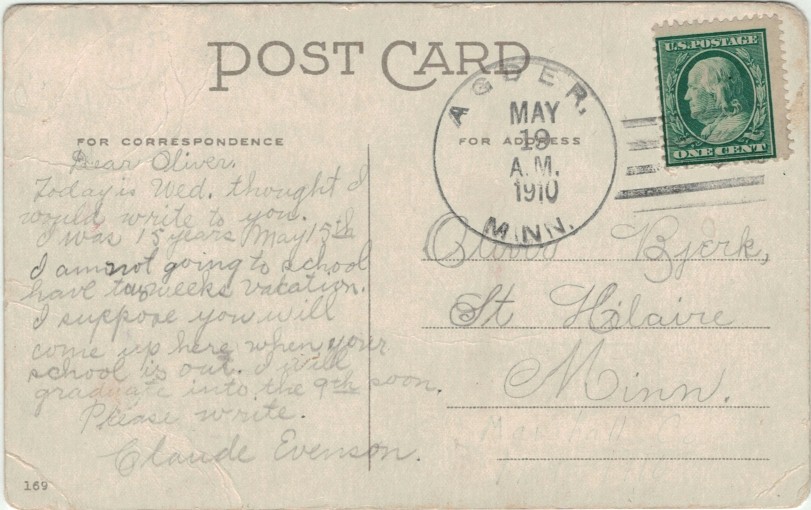 POST CARD
U.S. POSTAGE
ONE CENT
AGDER,
MAY
19
A.M.
1910
MINN.
FOR CORRESPONDENCE
FOR ADDRESS
Dear Oliver.
Today is Wed. thought I
would write to you.
I was 15 years May 15th
I am not going to school
have two weeks vacation.
I suppose you will
come up here when your
school is out. I will
graduate into the 9th soon.
Please write.
Claude Evenson.
Bjerk,
St Hilaire
Minn.
169